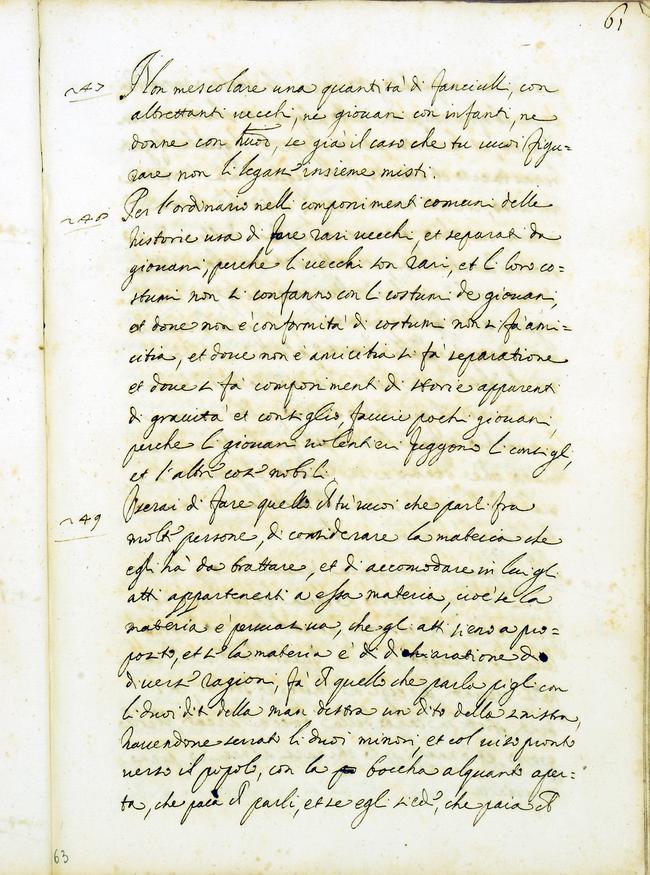 61
~47 Non mescolare una quantità di fanciulli, con
altrettanti vecchi, ne giovani con infanti, ne
donne con huoi, se già il caso che tu vuoi figu=
rare non li legasse insieme misti.
~48 Per l'ordinario nelli componimenti comuni delle
historie usa di fare rari vecchi, et separati da
giovani, perche li vecchi son rari, et li loro co=
stumi non si confanno con li costumi de giovani,
et dove non è conformità di costumi non si fà ami=
citia, et dove non è amicitia si fà separatione
et dove si fà componimenti di storie apparenti
di gravità et consiglio, faccie pochi giovani,
perche li giovani volentieri fuggono li consigli,
et l'altre cose nobili.
~49 Userai di fare quello che tù vuoi che parli fra
molte persone, di considerare la materia che
egli hà da trattare, et di accomodare in lui gli
atti appartenenti a essa materia, cioè se la
materia è persuasiva, che gli atti sieno a pro=
posito, et se la materia è di dichiaratione di
diverse ragioni, fà che quello che parla pigli con
li duoi diti della man destra un dito della sinistra,
havendone serrato li duoi minori, et col viso pronto
verso il popolo, con la boccha alquanto aper=
ta, che paia che parli, et se egli siede, che paia che
63